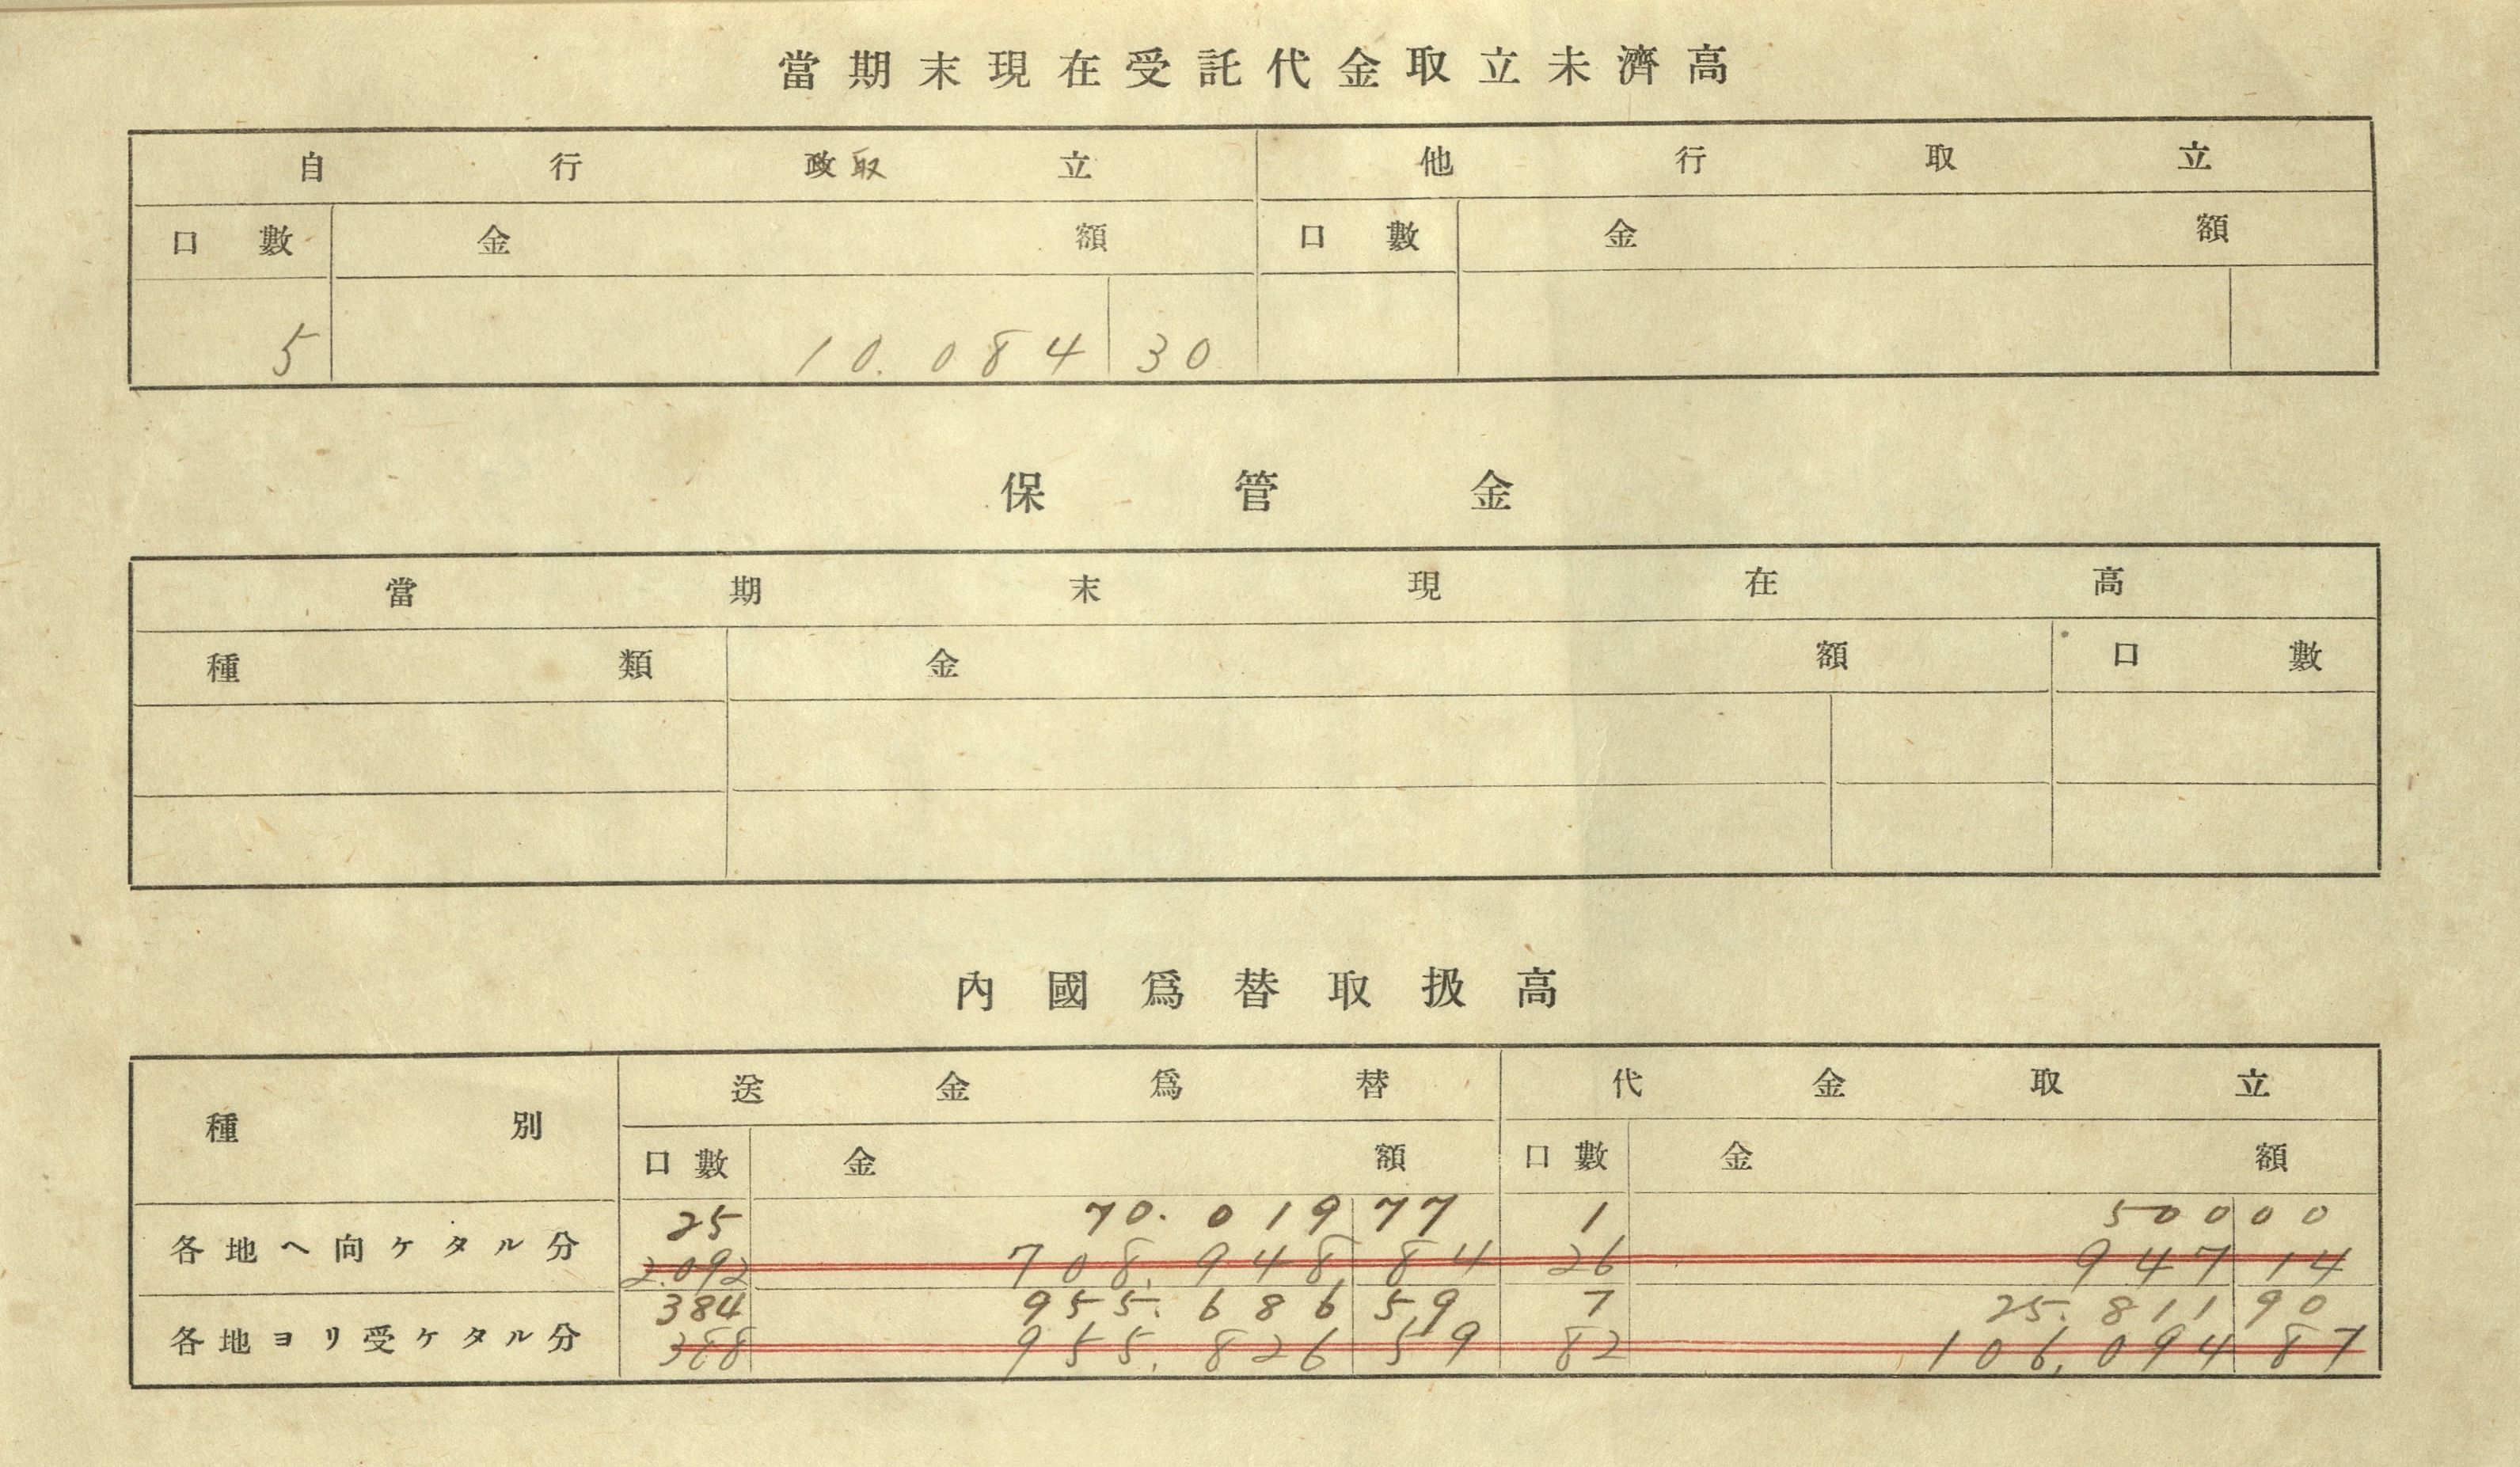 當期末現在受託代金取立未濟高
自行政取立 他行取立
口數 金額 口數 金額
5 10.084 30
保管金
當期末現在高
種類 金額 口數
內國爲替取扱高
種別 送金爲替 代金取立
口數 金額 口數 金額
25 70.019 77 1 500 00
各地ヘ向ケタル分
2.092 708.948 84 26 947 14
384 955.686 59 7 25.811 90
各地ヨリ受ケタル分
388 955.826 59 82 106.094 87